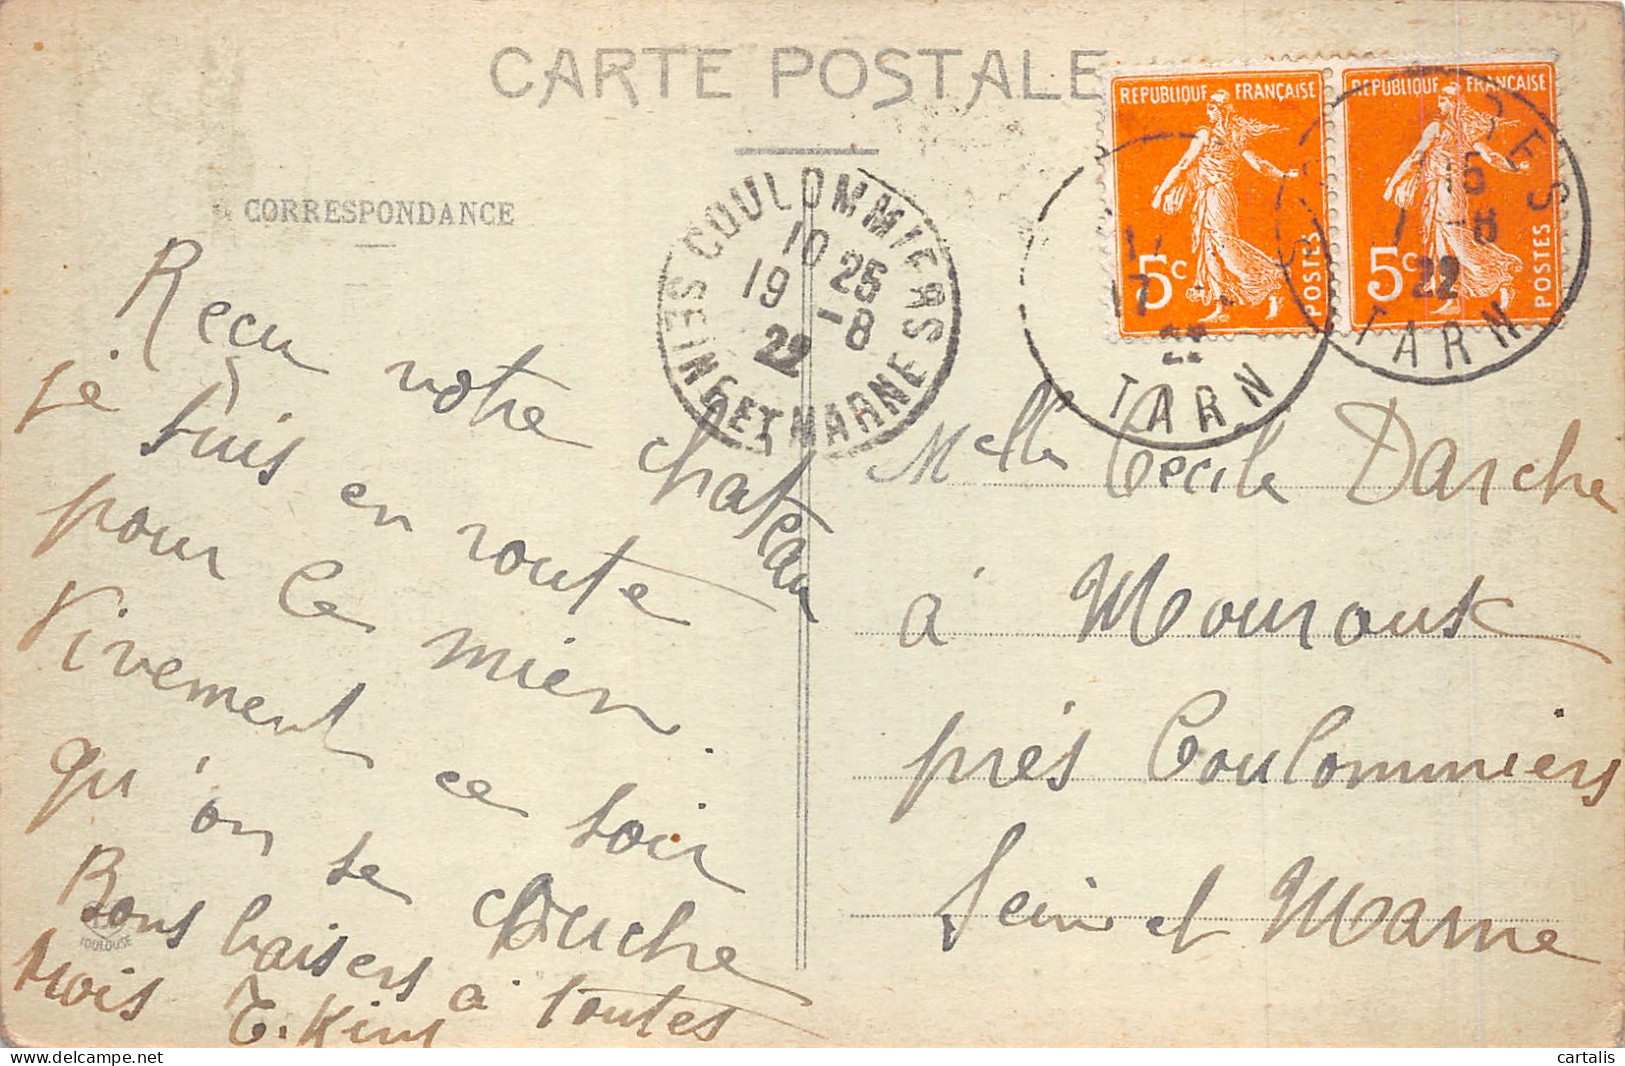 CARTE POSTALE
CORRESPONDANCE
REPUBLIQUE FRANÇAISE
5c POSTES
REPUBLIQUE FRANÇAISE
5c POSTES
TARN
22
TARN
22
COULOMMIERS
10 25
19 -8
22
SEINE ET MARNE
Reçu votre chateau
je suis en route
pour le mien.
Vivement ce soir
qu'on se couche
Bons baisers à toutes
trois
Melle Cécile Darche
à Mouroux
près Coulommiers
Seine et Marne
TOULOUSE
cartalis
delcampe.net